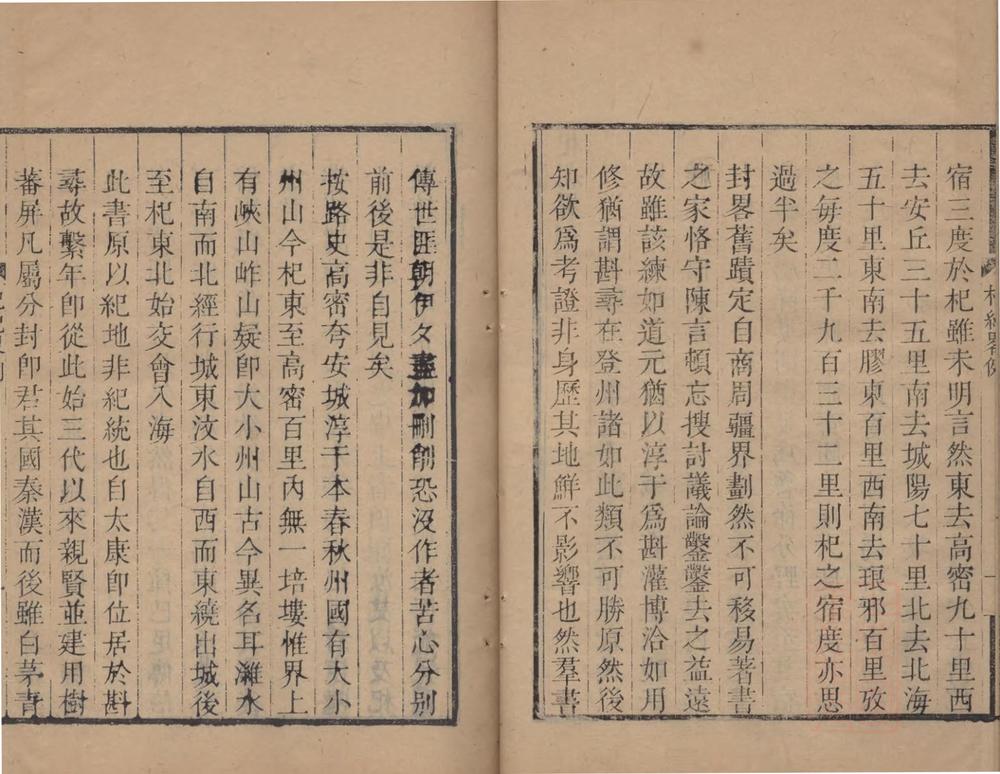 杞紀畧例
一
宿三度於杞雖未明言然東去高密九十里西
去安丘三十五里南去城陽七十里北去北海
五十里東南去膠東百里西南去琅邪百里攷
之每度二千九百三十二里則杞之宿度亦思
過半矣
封畧舊蹟定自商周疆界劃然不可移易著書
之家恪守陳言頓忘搜討議論鑿鑿去之益遠
故雖該練如道元猶以淳于爲斟灌博洽如用
修猶謂斟尋在登州諸如此類不可勝原然後
知欲爲考證非身歷其地鮮不影響也然羣書
傳世匪朝伊夕盡加刪削恐沒作者苦心分別
前後是非自見矣
按路史高密夸安城淳于本春秋州國有大小
州山今杞東至高密百里內無一培塿惟界上
有峽山岞山疑卽大小州山古今異名耳濰水
自南而北經行城東汶水自西而東繞出城後
至杞東北始交會入海
此書原以紀地非紀統也自太康卽位居於斟
尋故繫年卽從此始三代以來親賢並建用樹
蕃屏凡屬分封卽君其國秦漢而後雖白茅青